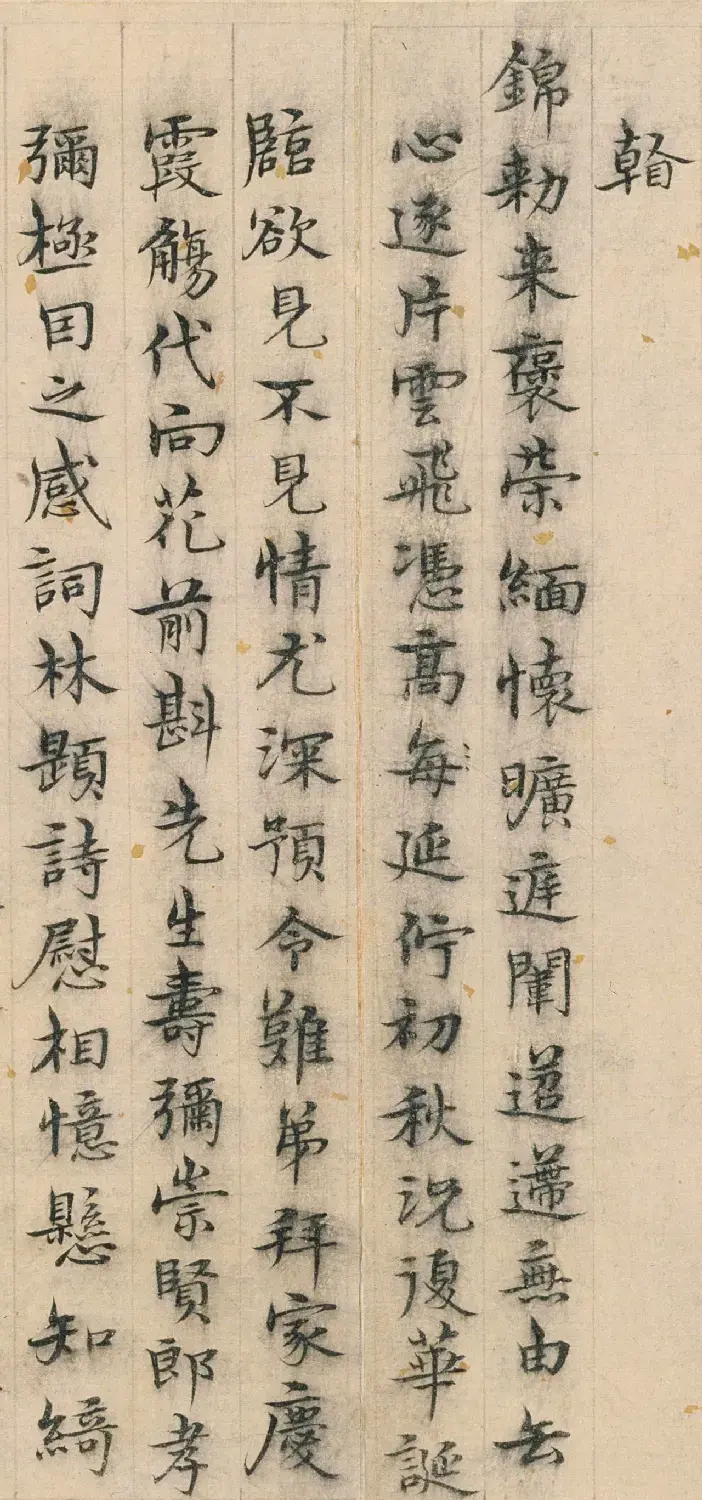 翰
錦勅来褒荣緬懷曠迹闡迢遰無由去
心逐片雲飛憑髙每延佇初秋況復華誕
臨欲見不見情尤深預令難弟拜家慶
霞觴代向花前斟先生壽彌崇賢郎孝
彌極因之感詞林題詩慰相憶懸知綺